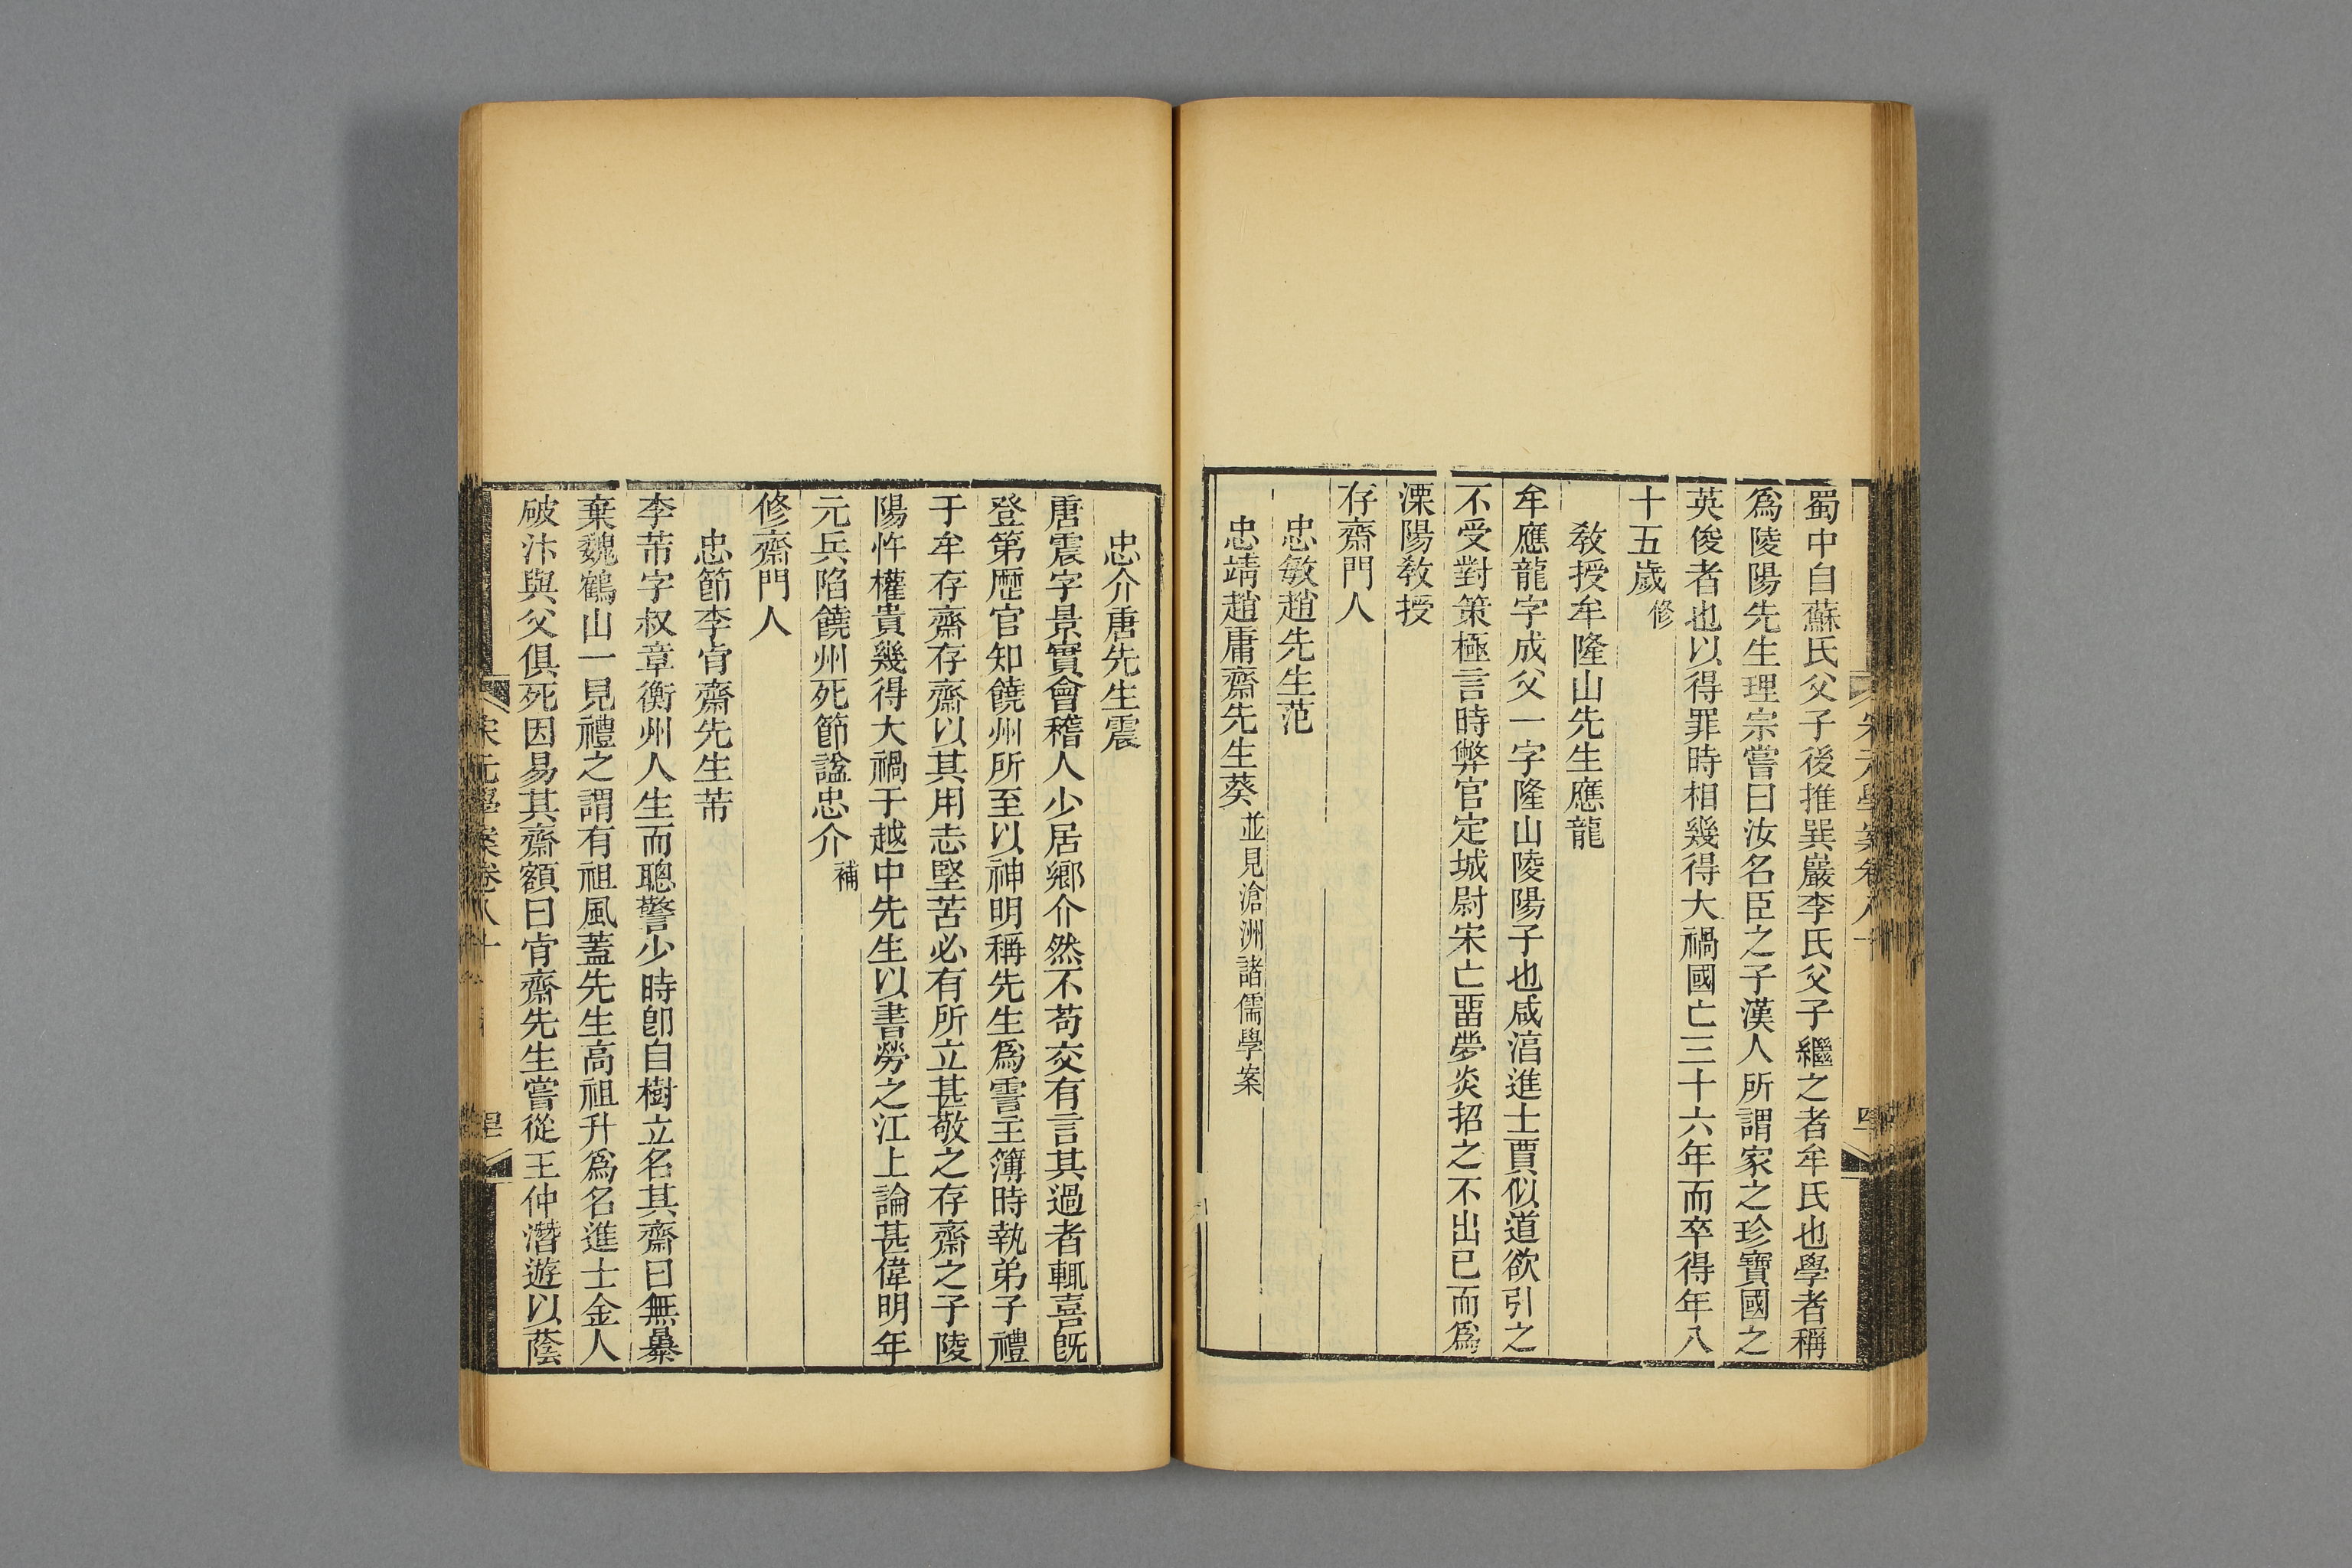 蜀中自蘇氏父子後推巽巖李氏父子繼之者牟氏也學者稱
爲陵陽先生理宗嘗曰汝名臣之子漢人所謂家之珍寶國之
英俊者也以得罪時相幾得大禍國亡三十六年而卒得年八
十五歲修
敎授牟隆山先生應龍
牟應龍字成父一字隆山陵陽子也咸淳進士賈似道欲引之
不受對策極言時弊官定城尉宋亡畱夢炎招之不出已而爲
溧陽敎授
存齋門人
忠敏趙先生范
忠靖趙庸齋先生葵並見滄洲諸儒學案
忠介唐先生震
唐震字景實會稽人少居鄉介然不苟交有言其過者輒喜旣
登第歷官知饒州所至以神明稱先生爲霅主簿時執弟子禮
于牟存齋存齋以其用志堅苦必有所立甚敬之存齋之子陵
陽忤權貴幾得大禍于越中先生以書勞之江上論甚偉明年
元兵陷饒州死節諡忠介補
修齋門人
忠節李肯齋先生芾
李芾字叔章衡州人生而聰警少時卽自樹立名其齋曰無暴
棄魏鶴山一見禮之謂有祖風蓋先生高祖升爲名進士金人
破汴與父俱死因易其齋額曰肯齋先生嘗從王仲潛遊以蔭
宋元學案卷八十